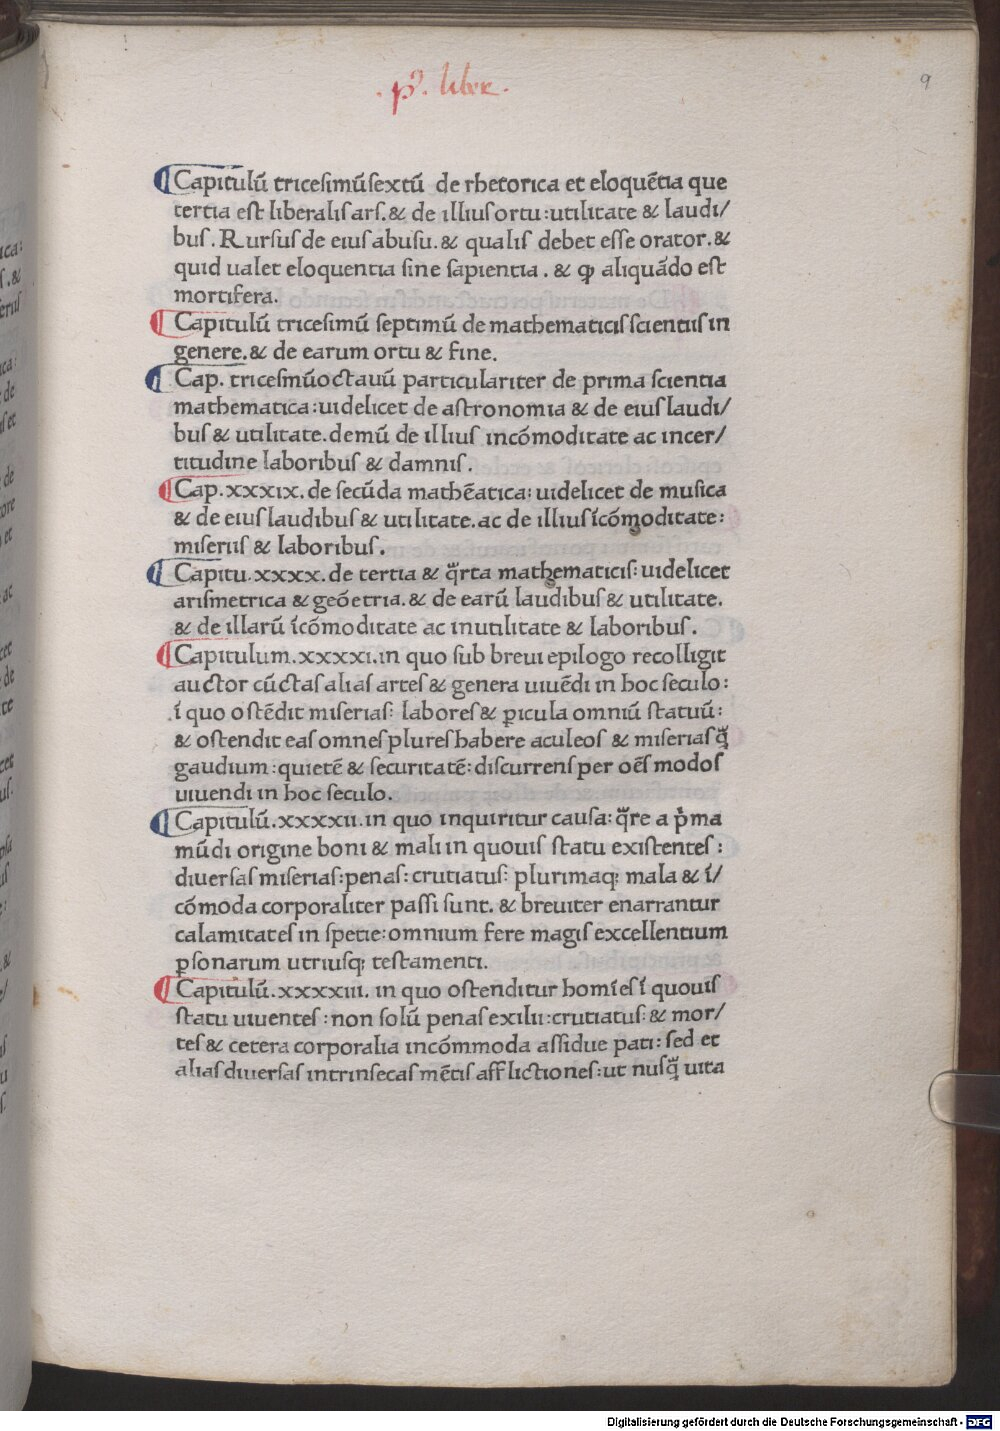 .pº. liber.
9
Capitulū tricesimūsextū de rhetorica et eloquētia que
tertia est liberalis ars. & de illius ortu: utilitate & laudi/
bus. Rursus de eius abusu. & qualis debet esse orator. &
quid ualet eloquentia sine sapientia. & ꝙ aliquādo est
mortifera.
Capitulū tricesimū septimū de mathematicis scientiis in
genere. & de earum ortu & fine.
Cap. tricesimūoctauū particulariter de prima scientia
mathematica: uidelicet de astronomia & de eius laudi/
bus & utilitate. demū de illius incōmoditate ac incer/
titudine laboribus & damnis.
Cap. xxxix. de secūda mathēatica: uidelicet de musica
& de eius laudibus & utilitate. ac de illius īcōmoditate:
miseriis & laboribus.
Capitu. xxxx. de tertia & q̄rta mathematicis: uidelicet
arismetrica & geōetria. & de earū laudibus & utilitate.
& de illarū īcōmoditate ac inutilitate & laboribus.
Capitulum. xxxxi. in quo sub breui epilogo recolligit
auctor cūctas alias artes & genera uiuēdi in hoc seculo:
ī quo ostēdit miserias: labores & ꝑicula omniū statuū:
& ostendit eas omnes plures habere aculeos & miserias q̄
gaudium: quietē & securitatē: discurrens per oēs modos
uiuendi in hoc seculo.
Capitulū. xxxxii. in quo inquiritur causa: q̄re a p̄ma
mūdi origine boni & mali in quouis statu existentes:
diuersas miserias: penas: cruciatus: plurimaq; mala & ī/
cōmoda corporaliter passi sunt. & breuiter enarrantur
calamitates in spetie: omnium fere magis excellentium
ꝑsonarum utriusq; testamenti.
Capitulū. xxxxiii. in quo ostenditur homīes ī quouis
statu uiuentes: non solū penas exilii: cruciatus: & mor/
tes & cetera corporalia incōmmoda assidue pati: sed et
alias diuersas intrinsecas mētis afflictiones: ut nusq̄ uita
Digitalisierung gefördert durch die Deutsche Forschungsgemeinschaft - DFG